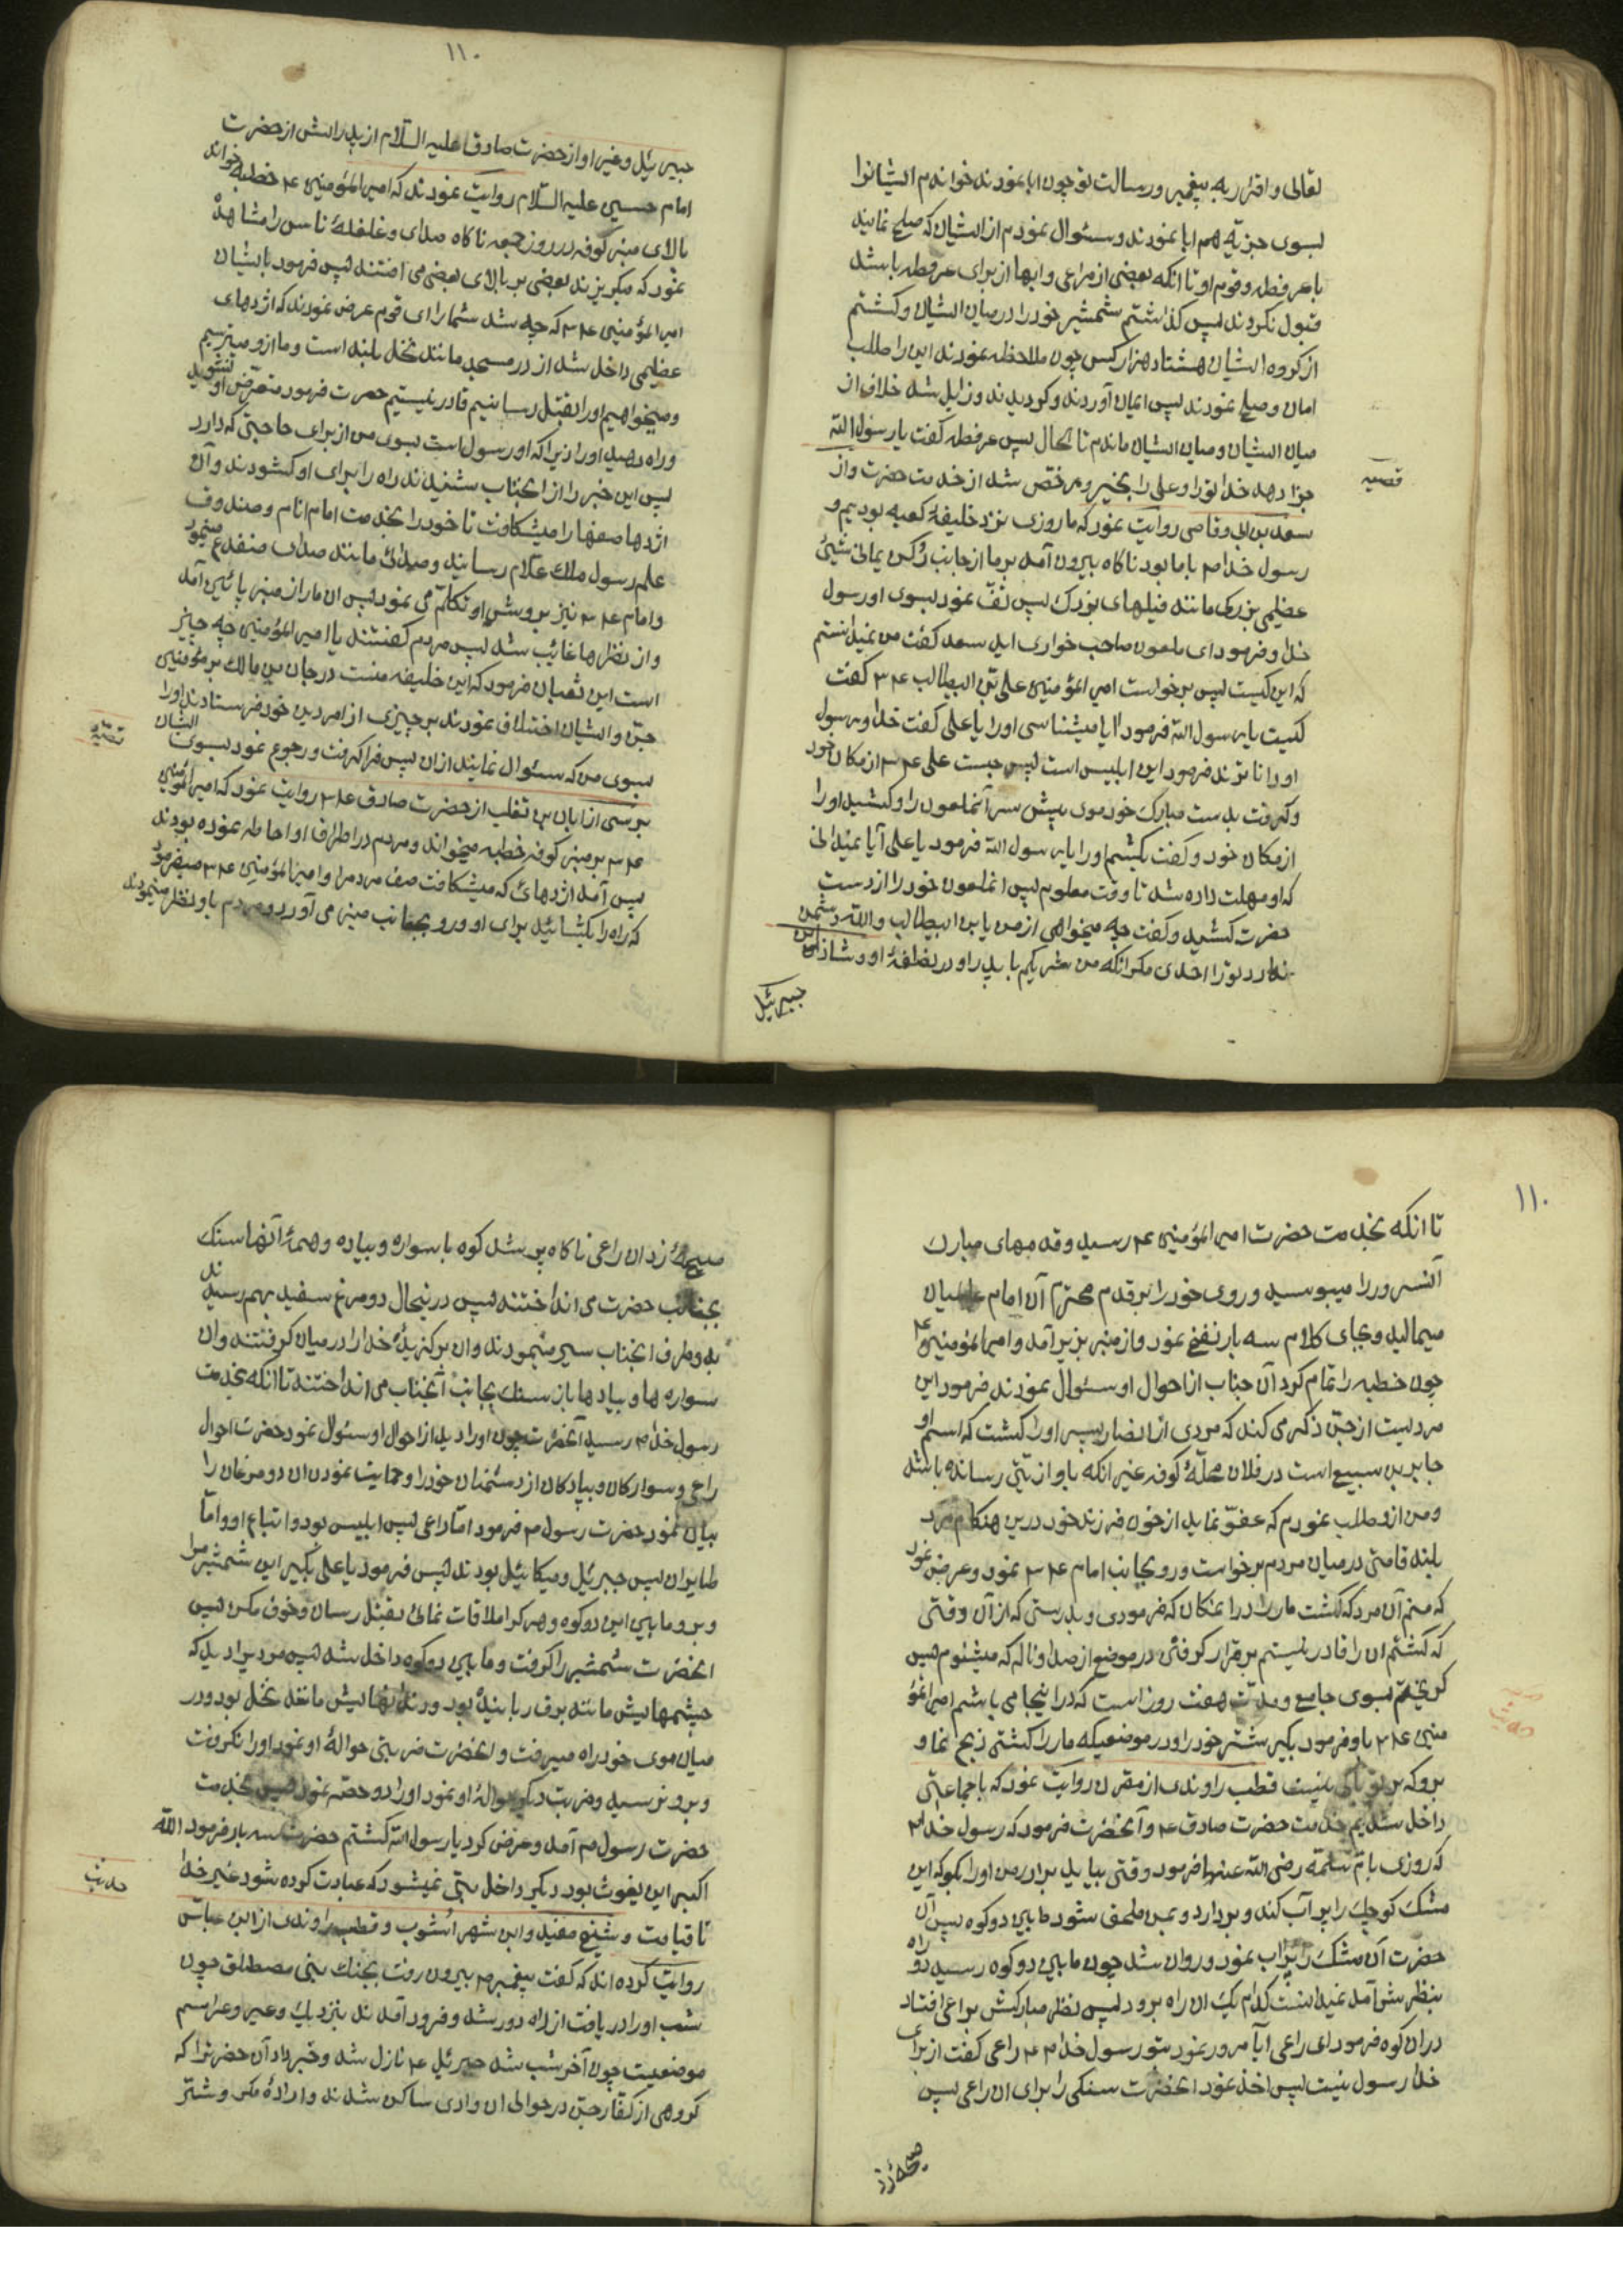 تعالی و اقرار به پیغمبر و رسالت تو چون ابا نمودند خواندم ایشانرا
بسوی جزیه هم ابا نمودند و سئوال نمودم از ایشان که صلح نمایند
با عرفطه و قوم او تا انکه بعضی از مراعی و ابها از برای عرفطه باشد
قبول نکردند پس کذاشتم شمشیر خود را در میان ایشان و کشتم
از کروه ایشان هشتاد هزار کس چون ملاحظه نمودند این را طلب
امان و صلح نمودند پس ایمان آوردند و کردیدند و زایل شد خلاف از
میان ایشان و میان ایشان ماندم تا بحال پس عرفطه کفت یا رسول الله
جزا دهد خدا تورا و علی را بخیر و مرخص شد از خدمت حضرت و از
قصیه
سعد بن ابی وقاصی روایت نمود که ما روزی نزد خلیفه کعبه بودیم و
رسول خدا م با ما بود ناکاه بیرون آمد بر ما از جانب رکن یمانی شیئ
عظیمی بزرک مانند فیلهای بزرک پس تف نمود بسوی او رسول
خدا و فرمود ای ملعون صاحب خواری اید سعد کفت من نمیدانستم
که این کیست پس برخواست امیر المؤمنین علی بن ابیطالب ع م کفت
کیست یا رسول الله فرمود ایا میشناسی اورا یا علی کفت خدا و رسول
او دانا ترند فرمود این ابلیس است پس جست علی ع م از مکان خود
و کرفت بدست مبارک خود موی پیش سر آنملعون را و کشید اورا
از مکان خود و کفت بکشم اورا یا رسول الله فرمود یا علی آیا نمیدانی
که او مهلت داده شد تا وقت معلوم پس انملعون خود را از دست
حضرت کشید و کفت چه میخواهی از من یا بن ابیطالب والله دشمن
ندارد تورا احدی مکر انکه من شریکم با پدر او در نطفهٔ او و شاذان ابن
جبرئیل
۱۱۰
جبرئیل و غیر او از حضرت صادق علیه السلام از پدرانش از حضرت
امام حسین علیه السلام روایت نمودند که امیر المؤمنین ع م خطبه خواند
بالای منبر کوفه در روز جمعه ناکاه صدای و غلغلهٔ ناس را مشاهدهٔ
نمود که میکریزند بعضی بر بالای بعضی می افتند پس فرمود بایشان
امیر المؤمنین ع م که چه شد شما را ای قوم عرض نمودند که اژدهای
عظیمی داخل شد از در مسجد مانند نخل بلند است و ما از و میترسیم
و میخواهیم اورا بقتل رسانیم قادر نیستیم حضرت فرمود متعرض او نشوید
و راه دهید اورا زیرا که او رسول است بسوی من از برای حاجتی که دارد
پس این خبر را از انجناب شنیدند راه را برای او کشودند و آن
اژدها صفها را میشکافت تا خود را بخدمت امام انام و صندوق
علم رسول ملک علام رسانید و صدائی مانند صدای ضفدع مینمود
و امام ع م نیز بروش او تکلم می نمود پس ان مار از منبر پائین آمد
و از نظرها غائیب شد پس مردم کفتند یا امیر المؤمنین چه چیز
است این ثعبان فرمود که این خلیفهٔ منست درجان بن مالک بر مؤمنین
جن و ایشان اختلاف نمودند بر چیزی از امر دین خود فرستادند اورا
بسوی من که سئوال نمایند ازان پس فرا کرفت و رجوع نمود بسوی ایشان
قصیه
برسی از ابان بن تغلب از حضرت صادق ع م روایت نمود که امیر المؤمنین
ع م بر منبر کوفه خطبه میخواند و مردم در اطراف او احاطه نموده بودند
پس آمد اژدهائ که میشکافت صف مردم را و امیر المؤمنین ع م میفرمود
که راه را بکشائید برای او و رو بجانب منبر می آورد و مردم باو نظر مینمودند
۱۱۰
تا انکه بخدمت حضرت امیر المؤمنین ع رسید و قدمهای مبارک
آنسرور را میبوسید و روی خود را بر قدم محترم آن امام عالمیان
میمالید و بجای کلام سه بار نفخ نمود و از منبر بزیر آمد و امیر المؤمنین ع
چون خطبه را تمام کرد آن جناب از احوال او سئوال نمودند فرمود این
مردیست از جن ذکر می کند که مردی از انصار پسر اورا کشت که اسم او
جابر بن سبیع است در فلان محلهٔ کوفه غیر انکه باو اذیتی رسانده باشد
و من ازو طلب نمودم که عفو نماید از خون فرزند خود درین هنکام مرد
بلند قامتی در میان مردم برخواست و رو بجانب امام ع م نمود و عرض نمود
که منم آن مرد که کشت مار را در انمکان که فرمودی و بدرستی که از آن وقتی
که کشتم ان را قادر نیستم بر قرار کرفتن در موضع از صدا و ناله که میشنوم پس
کریختم بسوی جامع و مدت هفت روز است که در اینجا می باشم امیر المؤ
منین ع م باو فرمود بکیر شتر خود را و در موضعیکه مار را کشتی ذبح نما و
حدیث
برو که بر تو باکی نیست قطب راوندی از مقرن روایت نمود که با جماعتی
داخل شدیم خدمت حضرت صادق ع و آنحضرت فرمود که رسول خدا م
که روزی بام سلمه رضی الله عنها فرمود وقتی بیاید برادر من اورا بکو که این
مشک کوچک را پر آب کند و بر دارد و بمن ملحق شود مابین دو کوه پس آن
حضرت آن مشک را پر آب نمود و روان شد چون مابین دو کوه رسید دو راه
بنظرش آمد نمیدانست کدام یک ان راه برود پس نظر مبارکش براعی افتاد
دران کوه فرمود ای راعی ایا مرور نمود بتو رسول خدا م ع راعی کفت از برای
خدا رسول نیست پس اخذ نمود انحضرت سنکی را برای ان راعی پس
صیحهٔ زد
صیحهٔ زد ان راعی ناکاه پر شد کوه با سواره و پیاده و همهٔ آنها سنک
بجانب حضرت می انداختند پس درینحال دو مرغ سفید بهم رسیدند
بدو طرف انجناب سیر مینمودند و ان بر کزیدهٔ خدا را در میان کرفتند و ان
سواره ها و پیادها باز سنک بجانب آنجناب می انداختند تا انکه بخدمت
رسول خدا م رسید آنحضرت چون اورا دید از احوال او سئوال نمود حضرت احوال
راعی و سوارکان و پیادکان از دشمنان خود را و حمایت نمودن ان دو مرغان را
بیان نمود حضرت رسول م فرمود اما راعی پس ابلیس بود و اتباع او و اما
طایران پس جبرئیل و میکائیل بودند پس فرمود یا علی بکیر این شمشیر مرا
و برو مابین این دو کوه و هر کرا ملاقات نمائ بقتل رسان و خوف مکن پس
انحضرت شمشیر را کرفت و مابین دو کوه داخل شد پس مردیرا دید که
چشمهایش مانند برق ربایندهٔ بود و دندانهایش مانند نخل بود و در
میان موی خود راه میرفت و انحضرت ضربتی حوالهٔ او نمود اورا نکرفت
و برو نرسید و ضربت دیکر حوالهٔ او نمود اورا دو حصه نمود پس بخدمت
حضرت رسول م آمد و عرض کرد یا رسول الله کشتم حضرت سه بار فرمود الله
اکبر این یغوث بود دیکر داخل بتی نمیشود که عبادت کرده شود غیر خدا
حدیث
تا قیامت و شیخ مفید و ابن شهر اشوب و قطب راوندی از ابن عباس
روایت کرده اند که کفت پیغمبر م بیرون رفت بجنک بنی مصطلق چون
شب اورا دریافت از راه دور شد و فرود آمدند بنزدیک وعیر و عراسم
موضعیست چون آخر شب شد جبرئیل ع نازل شد و خبر داد آن حضرترا که
کروهی از کفار جن در حوالی ان وادی ساکن شدند و ارادهٔ مکر و شتر